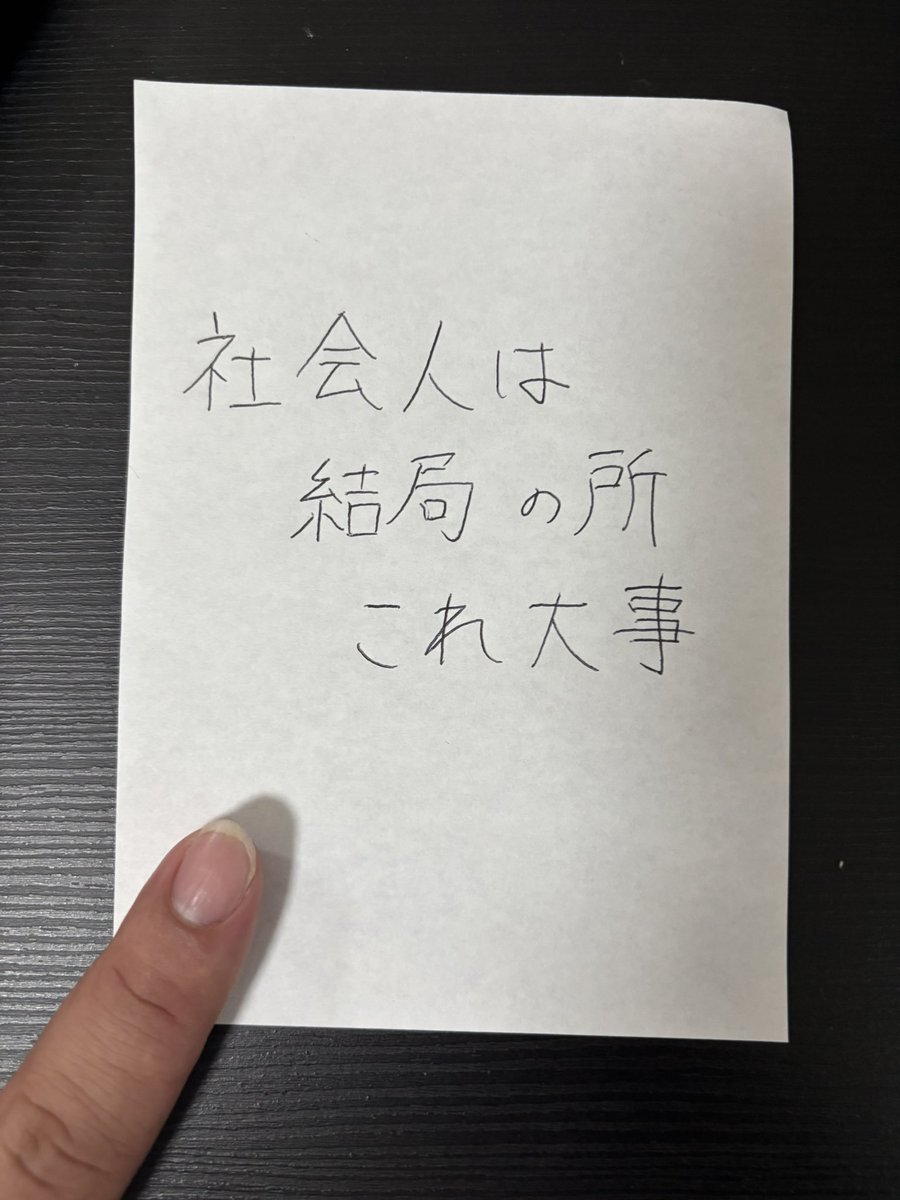 社会人は
結局の所
これ大事